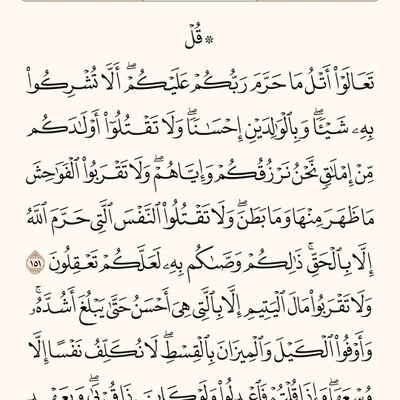 ۞ قُلۡ
تَعَالَوۡاْ أَتۡلُ مَا حَرَّمَ رَبُّكُمۡ عَلَيۡكُمۡۖ أَلَّا تُشۡرِكُواْ
بِهِۦ شَيۡـٔٗاۖ وَبِٱلۡوَٰلِدَيۡنِ إِحۡسَٰنٗاۖ وَلَا تَقۡتُلُوٓاْ أَوۡلَٰدَكُم
مِّنۡ إِمۡلَٰقٖ نَّحۡنُ نَرۡزُقُكُمۡ وَإِيَّاهُمۡۖ وَلَا تَقۡرَبُواْ ٱلۡفَوَٰحِشَ
مَا ظَهَرَ مِنۡهَا وَمَا بَطَنَۖ وَلَا تَقۡتُلُواْ ٱلنَّفۡسَ ٱلَّتِي حَرَّمَ ٱللَّهُ
إِلَّا بِٱلۡحَقِّۚ ذَٰلِكُمۡ وَصَّىٰكُم بِهِۦ لَعَلَّكُمۡ تَعۡقِلُونَ ١٥١
وَلَا تَقۡرَبُواْ مَالَ ٱلۡيَتِيمِ إِلَّا بِٱلَّتِي هِيَ أَحۡسَنُ حَتَّىٰ يَبۡلُغَ أَشُدَّهُۥۚ
وَأَوۡفُواْ ٱلۡكَيۡلَ وَٱلۡمِيزَانَ بِٱلۡقِسۡطِۖ لَا نُكَلِّفُ نَفۡسًا إِلَّا
وُسۡعَهَاۖ وَإِذَا قُلۡتُمۡ فَٱعۡدِلُواْ وَلَوۡ كَانَ ذَا قُرۡبَىٰۖ وَبِعَهۡدِ